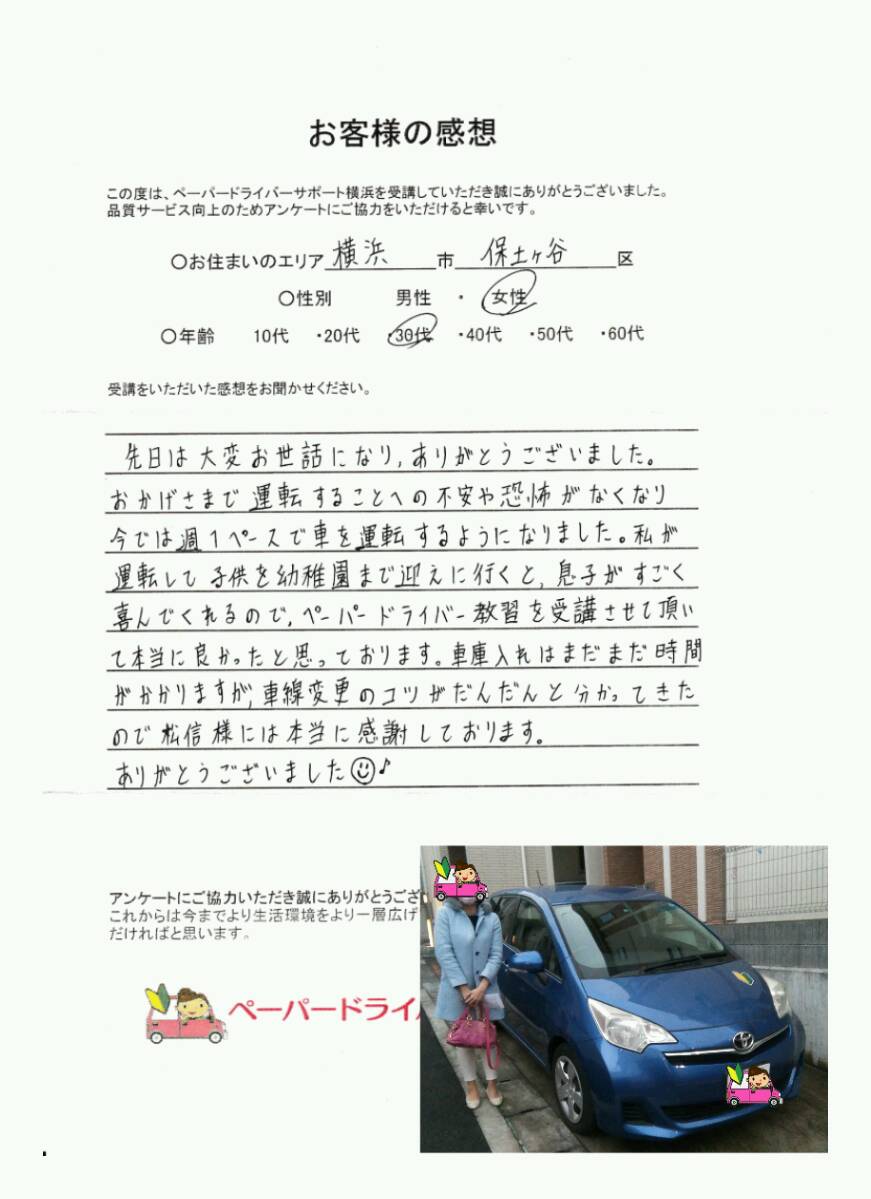 お客様の感想
この度は、ペーパードライバーサポート横浜を受講していただき誠にありがとうございました。
品質サービス向上のためアンケートにご協力をいただけると幸いです。
○お住まいのエリア 横浜 市 保土ヶ谷 区
○性別 男性 ・ 女性
○年齢 10代 ・20代 ・30代 ・40代 ・50代 ・60代
受講をいただいた感想をお聞かせください。
先日は大変お世話になり、ありがとうございました。
おかげさまで運転することへの不安や恐怖がなくなり
今では週1ペースで車を運転するようになりました。私が
運転して子供を幼稚園まで迎えに行くと、息子がすごく
喜んでくれるので、ペーパードライバー教習を受講させて頂い
て本当に良かったと思っております。車庫入れはまだまだ時間
がかかりますが、車線変更のコツがだんだんと分かってきた
ので松信様には本当に感謝しております。
ありがとうございました☺♪
アンケートにご協力いただき誠にありがとうござ
これからは今までより生活環境をより一層広げ
だければと思います。
ペーパードライ